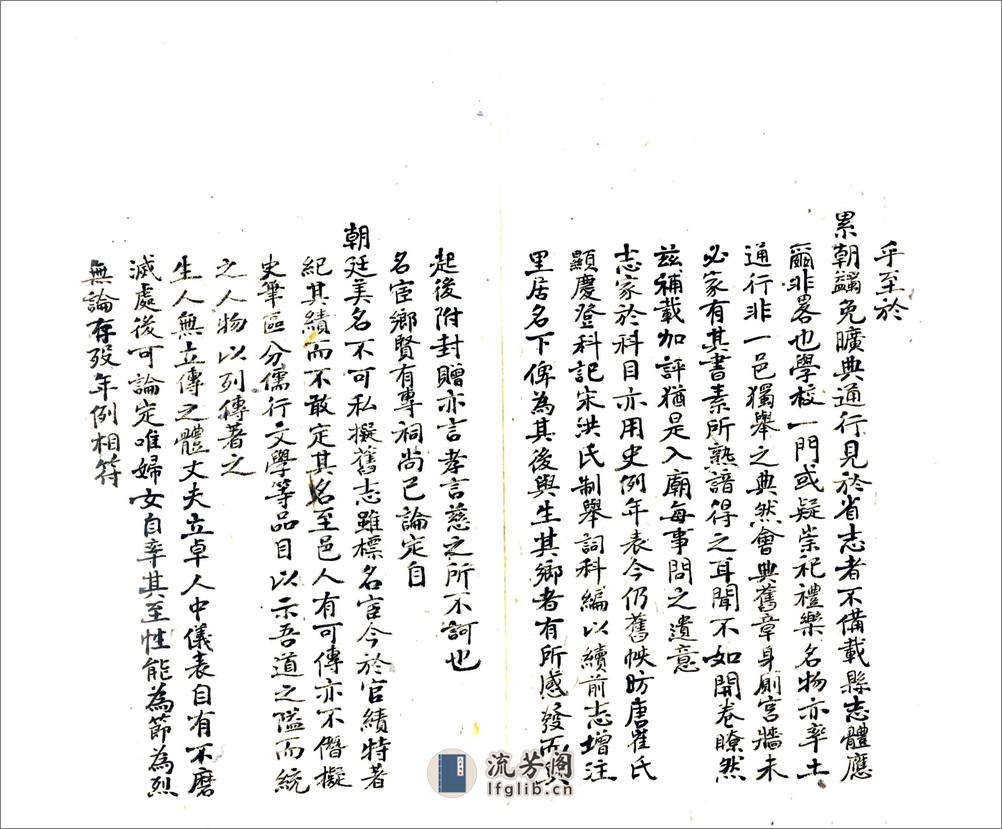 乎至於
累朝蠲免曠典通行見於省志者不備載縣志體應
爾非畧也學校一門或疑崇祀禮樂名物亦率土
通行非一邑獨舉之典然會典舊章身廁宮牆未
必家有其書素所熟諳得之耳聞不如開卷瞭然
茲補載加評猶是入廟每事問之遺意
志家於科目亦用史例年表今仍舊帙昉唐崔氏
顯慶登科記宋洪氏制舉詞科編以續前志增注
里居名下俾為其後與生其鄉者有所感發而
起後附封贈亦言孝言慈之所不訶也
名宦鄉賢有專祠尚已論定自
朝廷美名不可私撰舊志雖標名宦今於官績特著
紀其績而不敢定其名至邑人有可傳亦不僭擬
史筆區分儒行文學等品目以示吾道之隘而統
之人物以列傳著之
生人無立傳之體丈夫立卓人中儀表自有不磨
滅處後可論定唯婦女自率其至性能為節為烈
無論存歿年例相符
流芳閣
lfglib.cn